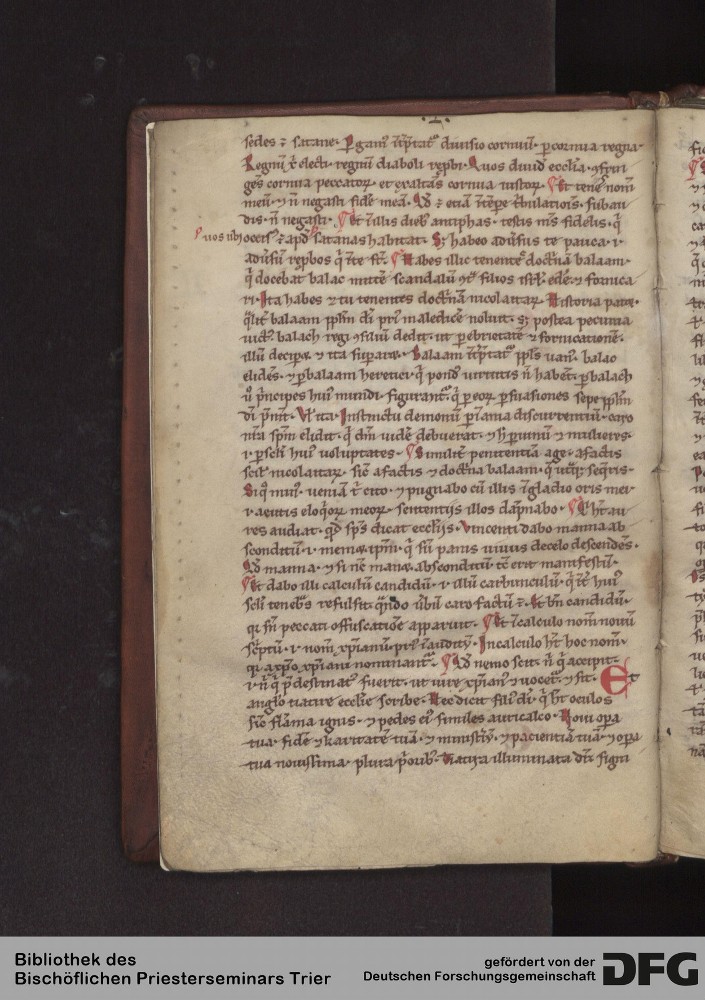 sedes ē satane. Pgam᷒ īt̄pta᷒ diuisio cornuū. p cornua regna.
Regnū x̄ elecᵗⁱ. regnū diaboli repbⁱ. Quos diuid᷒ ecclīa. ↄfrin
gēs cornua peccatoꝝ. et exaltās cornua iustoꝝ. Et tenes nom̄
meū. ⁊ n̄ negasti fidē meā. Qđ ē etiā tēpe tbulatiōis. subau
dis. n̄ negasti. Et ī illis dieb᷒ antiphas. testis m̄s fidelis. q̄
uos ubi occis᷒ ē apđ satanas habitat. Sꝫ habeo adūsus te pauca. ⁊
adūsū repbos qⁱ ī te st̄. Habes illic tenentes doctⁱnā balaam.
qⁱ docebat balac mittē scandalū filios isrl̄. edē. ⁊ fornica
ri. Ita habes ⁊ tu tenentes doctⁱnā nicolaitaꝝ. Historia patet.
qlit᷒ balaam pplm̄ di pⁱ maledicē noluit. sꝫ postea pecunia
balach regi ↄsiliū dedit. ut p ebrietatē ⁊ fornicationē.
illū decipet. ⁊ ita supaet. Balaam īt̄ptat᷒ ppl̄s uan᷒. balac
elidēs. ⁊ p balaam heretici qⁱ pond᷒ uirtutis n̄ habēt. p balach
ū pⁱncipes hui᷒ mundi figurant᷒. qⁱ p eoꝝ psuasiones sepe pplm̄
di. Vl᷒ ita. Instinctu demonū p īania discurrentiū. caro
nr̄a spm̄ elidit. qⁱ dn̄m uidē debuerat. ⁊ h᷒ p uinū ⁊ mulieres.
⁊ p scl̄i hui᷒ uoluptates. Similit᷒ penitentiā age. a factis
scił nicolaitaꝝ. sic̄ a factis ⁊ doctⁱna balaam. qⁱ utⁱꝫ seqⁱris.
Siqⁱ min᷒. ueniā t᷒ cito. ⁊ pugnabo cū illis ī gladio oris mei
⁊ acutis eloqⁱoꝝ meoꝝ. sententiis illos dāpnabo. Qⁱ ht᷒ au
res audiat. qđ sps̄ dicat eccliis. Vincenti dabo manna ab
sconditū. ⁊ memetipm̄. qⁱ sū panis uiuus de celo descendēs.
manna. ⁊ si nc̄ manet absconditū tc̄ erit manifestū.
Et dabo illi calculū candidū. ⁊ illū carbunculū. qⁱ ī hui᷒
scl̄i tenebⁱs refulsit. qⁿdo ūbū caro factū ē. Et bn̄ candidū.
qⁱ sū peccati offuscatiōe apparuit. Et ī calculo nom̄ nouū
sc̄ptū. ⁊ nom̄ xp̄ianū. pⁱ īauditū. In calculo ht᷒ hoc nom̄.
qⁱ a xp̄o xp̄iani nominant᷒. Qđ nemo scit. n̄ qⁱ accipit.
⁊ n̄ qⁱ pdestinat᷒ fuerit. ut uere xp̄ian᷒ ⁊ uocet᷒. ⁊ sit. Et
anglo tiatire ecclie scribe. Hec dicit fili᷒ di. qⁱ ht᷒ oculos
sic̄ flāma ignis. ⁊ pedes ei᷒ similes auricalco. Noui opa
tua. fidē ⁊ karitatē tuā. ⁊ ministⁱū. ⁊ pacientiā tuā. ⁊ opa
tua nouissima. plura pⁱorib᷒. Tiatyra illuminata dr̄. signi
Bibliothek des
Bischöflichen Priesterseminars Trier
gefördert von der
Deutschen Forschungsgemeinschaft DFG